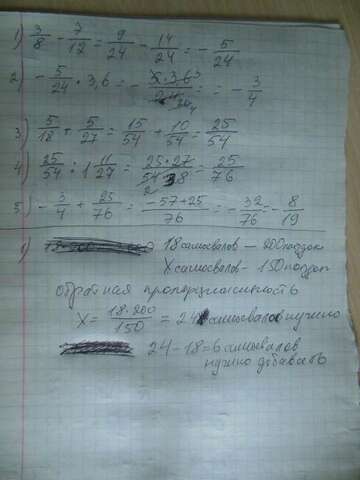 1) 3/8 - 7/12 = 9/24 - 14/24 = - 5/24
2) - 5/24 · 3,6 = - = - 3/4
3) 5/18 + 5/27 = 15/54 + 10/54 = 25/54
4) 25/54 : 1 11/27 = 25·27/54·38 = 25/76
5) - 3/4 + 25/76 = -57+25/76 = - 32/76 = - 8/19
1) 18 самосвалов — 200 поездок
X самосвалов - 150 поездок
обратная пропорциональность
X = 18·200/150 = 24 самосвалов нужно
24-18=6 самосвалов
нужно добавить